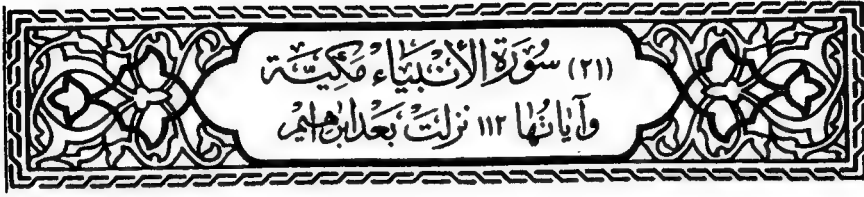 (٢١) سُورَةُ الأَنْبِيَاءِ مَكِيَّة
وَآيَاتُهَا ١١٢ نَزَلَتْ بَعْدَ ابْرَاهِيم